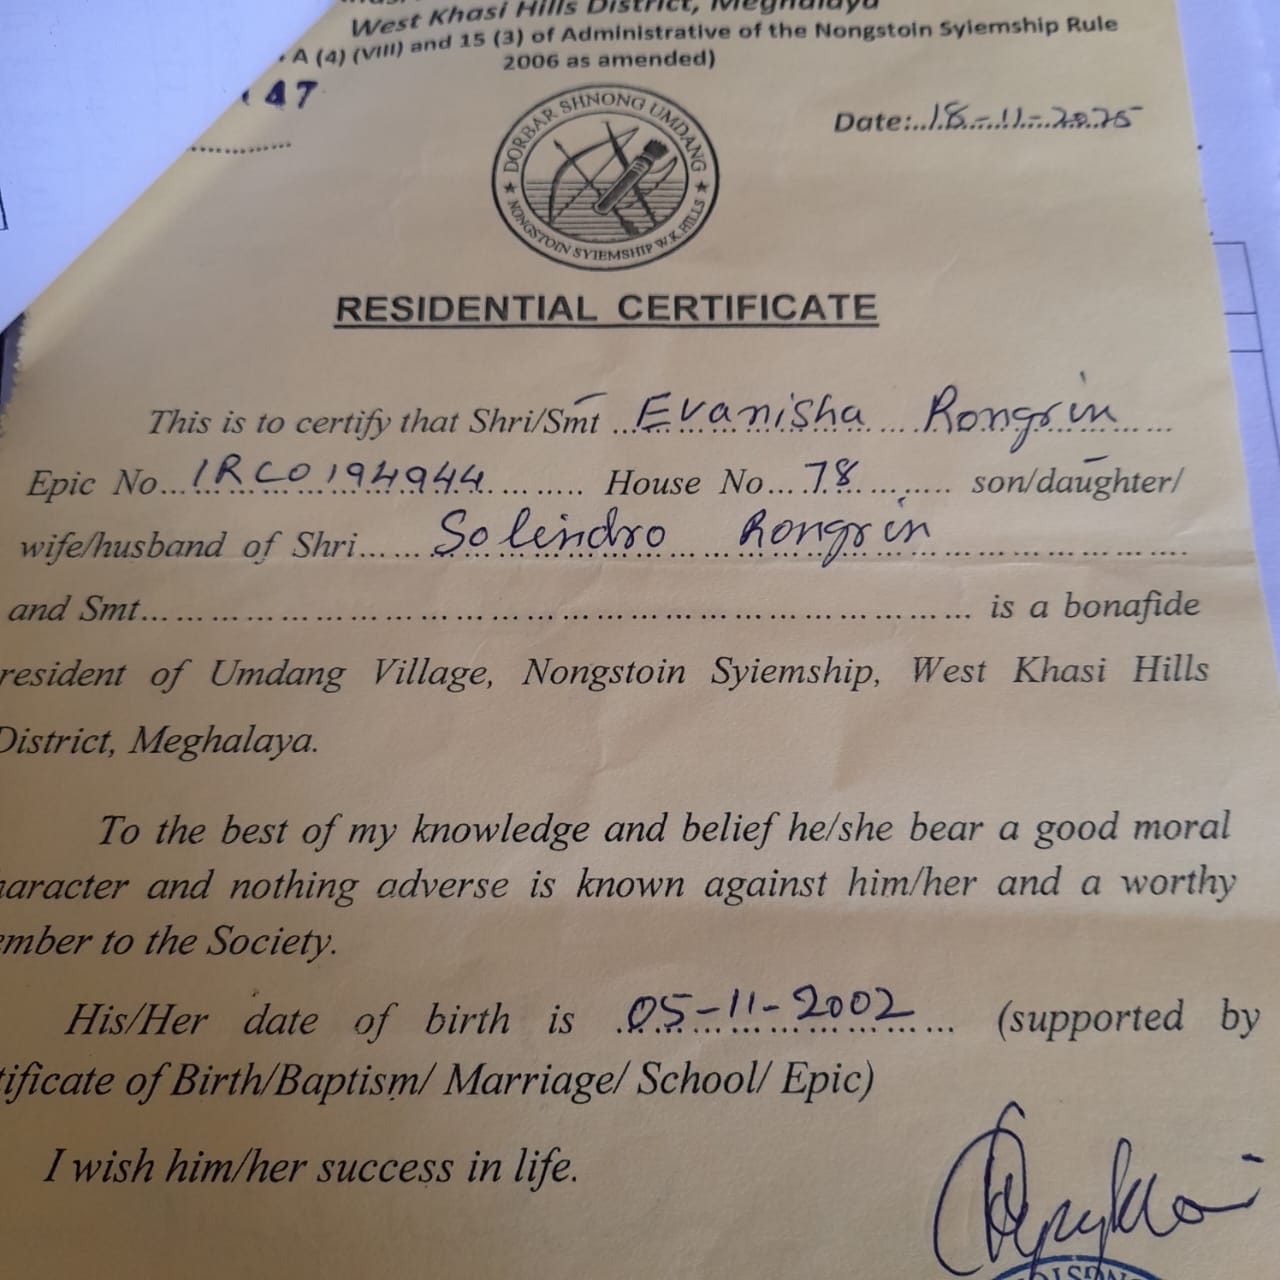 West Khasi Hills District, Meghalaya
A (4) (VIII) and 15 (3) of Administrative of the Nongstoin Syiemship Rule
2006 as amended)
47
Date:..18-11-2025
DORBAR SHNONG UMDANG
★ NONGSTOIN SYIEMSHIP W.K.HILLS ★
RESIDENTIAL CERTIFICATE
This is to certify that Shri/Smt ...Evanisha Rongrin...
Epic No...IRC0194944......... House No...78......... son/daughter/
wife/husband of Shri......Solindro Rongrin...........................
and Smt.................................................................. is a bonafide
resident of Umdang Village, Nongstoin Syiemship, West Khasi Hills
District, Meghalaya.
To the best of my knowledge and belief he/she bear a good moral
haracter and nothing adverse is known against him/her and a worthy
ember to the Society.
His/Her date of birth is ..05-11-2002... (supported by
tificate of Birth/Baptism/ Marriage/ School/ Epic)
I wish him/her success in life.